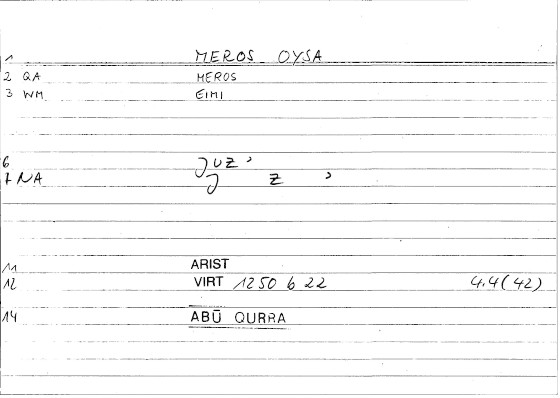 1 MEROS OYSA
2 QA MEROS
3 WM EIMI
6 Juz'
7 NA J Z '
11 ARIST
12 VIRT 1250 b 22 4.4(42)
14 ABŪ QURRA